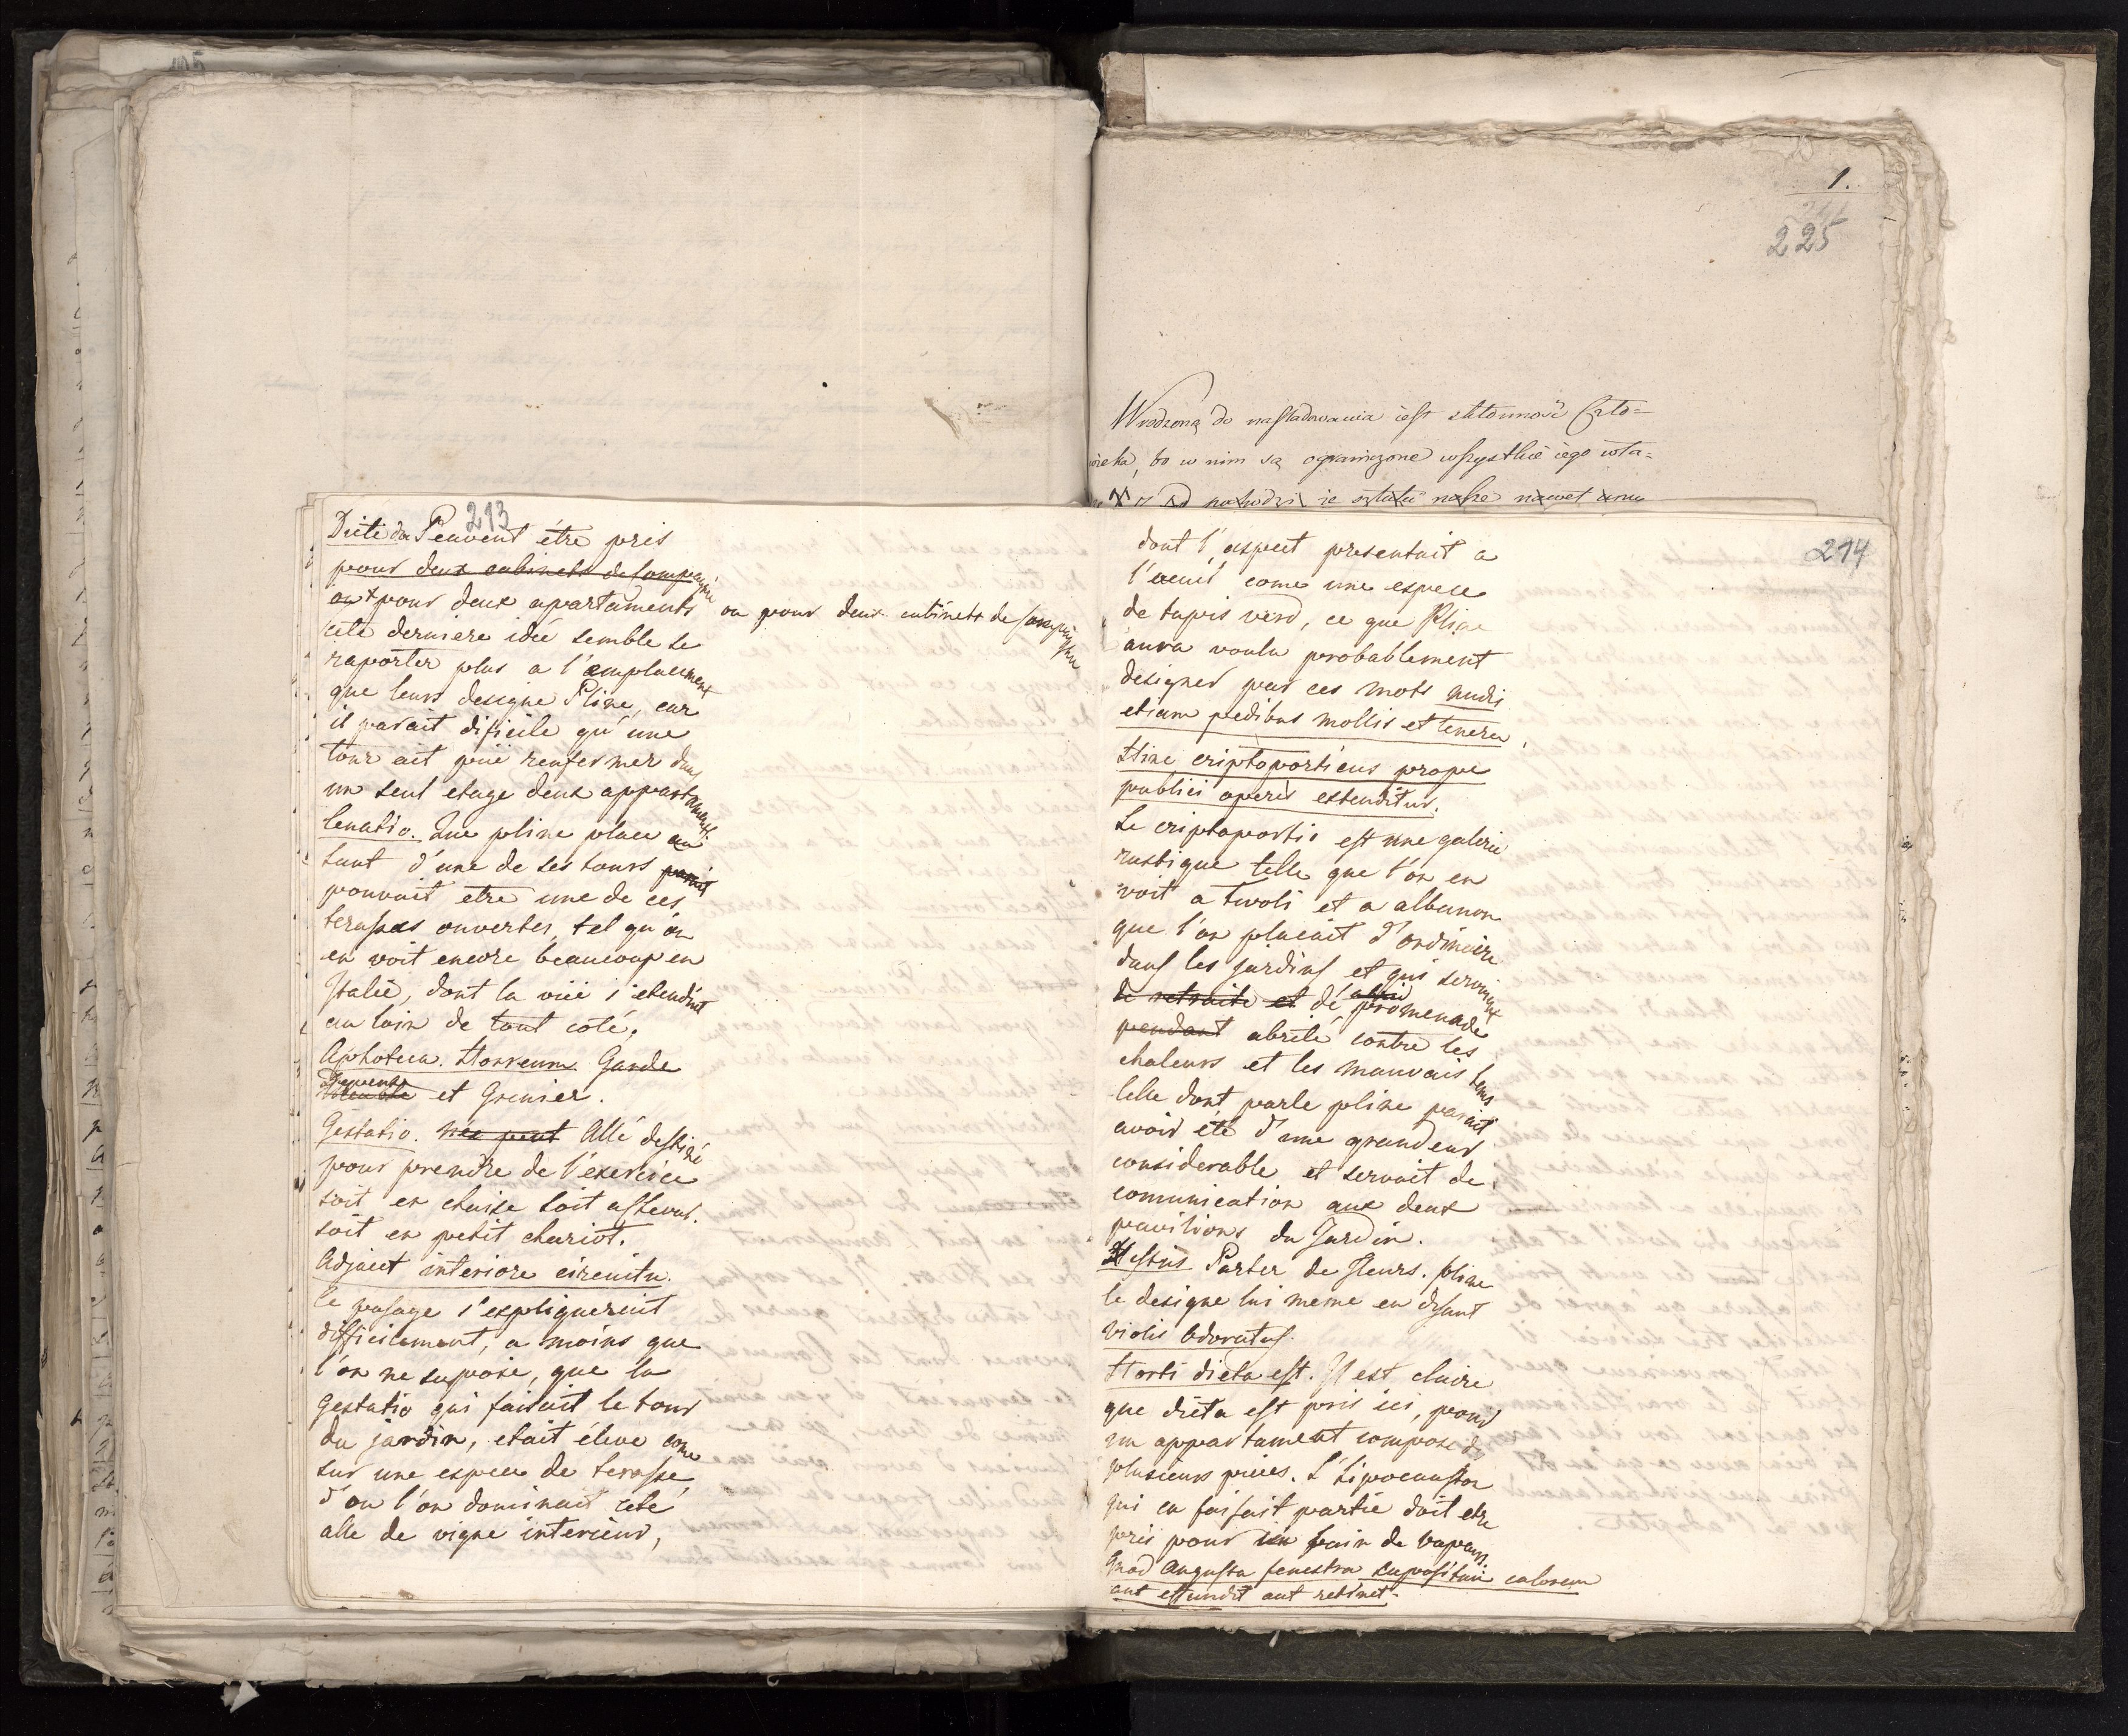 105
1.
225
Wrodzoną do naśladowania iest skłonność Czło=
wieka, bo w nim są ograniczone wszystkie iego wła=
213
Dieteda Peuvent étre pris
pour deux cabinets de Compagnie
ou + pour deux apartaments ou pour deux cabinets de Compagnie
cete derniere idée semble se
raporter plus a l'emplacement
que leurs designe Pline, car
il parait dificile qu'une
tour ait puë renfermer dans
un seul etage deux appartaments.
Cenatio. Que pline place au
haut d'une de ses tours parait
pouvait etre une de ces
terasses ouvertes, tel qu'on
en voit encore beaucoup en
Italie, dont la vüe s'etendait
au loin de tout coté.
Aphoteca. Horreum. Garde
Depense et Grenier.
Gestatio. Allé destiné
pour prendre de l'exercice
soit en chaise soit acheval.
soit en petit chariot.
Adjacet interiore circuitu.
Ce pasage s'expliquerait
difficilement, a moins que
l'on ne supose, que la
Gestatio qui faisait le tour
du jardin, etait éleve come
sur une espece de terasse,
d'ou l'on dominait cete
alle de vigne interieur,
214
dont l'aspect presentait a
l'oeuil come une espece
de tapis verd, ce que Pline
aura voulu probablement
designer par ces mots nudis
etiam pedibus mollis et tenera,
Hinc criptoporticus prope
publici operis extenditur.
Le criptoportic est une galerie
rustique telle que l'on en
voit a Tivoli et a albanon
que l'on placait d'ordinaire
dans les jardins et qui servaient
de retraite et de promenade
pendant abrité contre les
chaleurs et les mauvais tems
Celle dont parle pline parait
avoir été d'une grandeur
considerable et servait de
comunication aux deux
pavilions du Jardin.
Xystus Parter de fleurs. pline
le designe lui meme en disant
violis odoratus.
Horti dieta est. Il est claire
que dieta est pris ici, pour
un appartament composé de
plusieurs pieces. L'hipocauston
qui en faisait partie doit etre
pris pour un bain de vapeurs.
Quod angusta fenestra supositum calorem
aut effundit aut retinet.